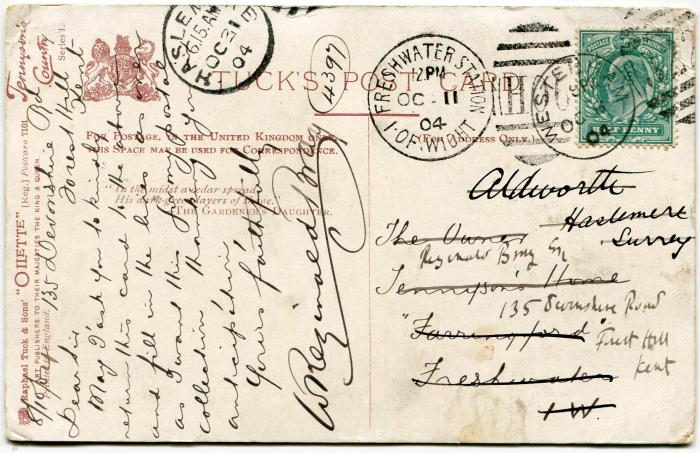 Tennyson's
Country
Series I.
Raphael Tuck & Sons' "OILETTE" [Reg.] Postcard 7101.
ART PUBLISHERS TO THEIR MAJESTIES THE KING & QUEEN.
England.
TUCK'S POST CARD
FOR POSTAGE IN THE UNITED KINGDOM ONLY
THIS SPACE MAY BE USED FOR CORRESPONDENCE.
(FOR ADDRESS ONLY.)
"In the midst a cedar spread
His dark-green layers of shade."
THE GARDENER'S DAUGHTER.
4397
HASLEMERE
6.15 AM
OC 21
04
FRESHWATER STATION
12 PM
OC 11
04
I. OF. WIGHT
POSTAGE
HALF PENNY
135 Devonshire Rd
Forest Hill
Kent
8/10/04
Dear Sir
May I ask you to kindly
return this card to the above
and fill in the lines over
as I want this for my postal
collection thanking you
anticipation
Yours faithfully
W Reginald Bray
Aldworth
Haslemere
Surrey
The Owner
Reginald Bray Esq
Tennyson's Home
135 Devonshire Road
"Farringford"
Forest Hill
Kent
Freshwater
I.W.